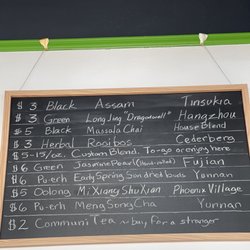 $3 Black Assam Tinsukia
$3 Green Long Jing "Dragonwell" Hangzhou
$5 Black Massala Chai House Blend
$3 Herbal Rooibos Cederberg
$5-15/oz. Custom Blend. To-go or enjoy here
$6 Green Jasmine Pearl (Hand-rolled) Fujian
$6 Pu-erh Early Spring Sundried buds Yonnan
$5 Oolong Mi Xiang Shu Xian Phoenix Village
$6 Pu-erh Meng Song Cha Yunnan
$2 Communi Tea ~ buy, for a stranger